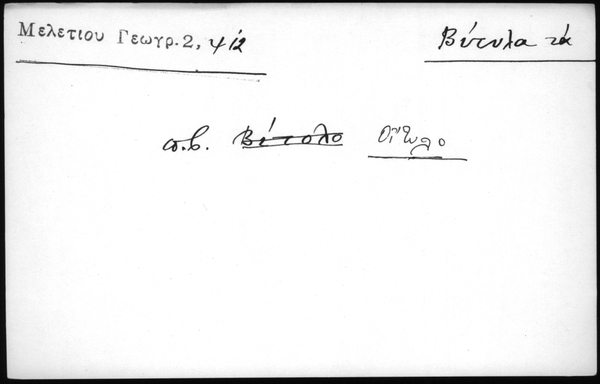 Μελετίου Γεωγρ. 2, 412
Βύτυλα τά
π.β. Βίτολο Οἴτυλο